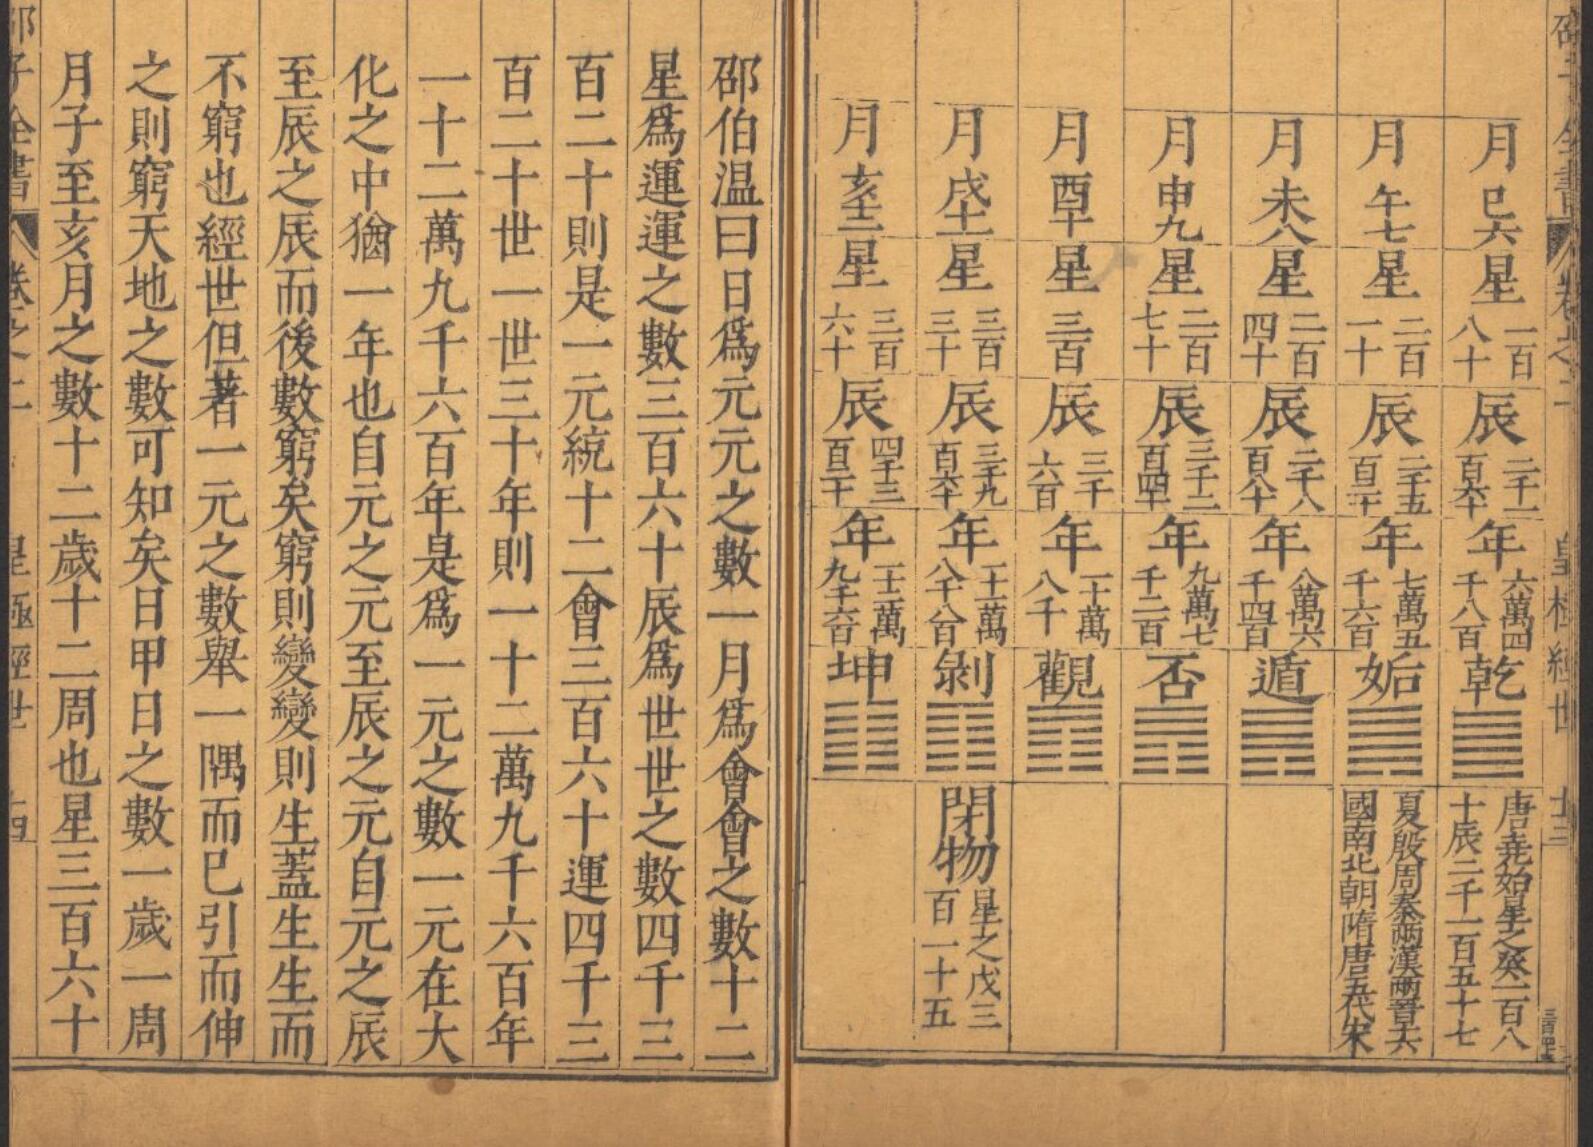 邵子全書 卷之二 皇極經世 廿三
月巳六星一百八十辰二千一百六十年六萬四千八百乾唐堯始星之癸一百八十辰二千一百五十七
月午七星二百一十辰二千五百二十年七萬五千六百姤夏殷周秦兩漢兩晉十六國南北朝隋唐五代宋
月未八星二百四十辰二千八百八十年八萬六千四百遁
月申九星二百七十辰三千二百四十年九萬七千二百否
月酉十星三百辰三千六百年一十萬八千觀
月戌十一星三百三十辰三千九百六十年一十一萬八千八百剝閉物星之戊三百一十五
月亥十二星三百六十辰四千三百二十年一十二萬九千六百坤
邵伯温曰日爲元元之數一月爲會會之數十二
星爲運運之數三百六十辰爲世世之數四千三
百二十則是一元統十二會三百六十運四千三
百二十世一世三十年則一十二萬九千六百年
一十二萬九千六百年是爲一元之數一元在大
化之中猶一年也自元之元至辰之元自元之辰
至辰之辰而後數窮矣窮則變變則生蓋生生而
不窮也經世但著一元之數舉一隅而已引而伸
之則窮天地之數可知矣日甲日之數一歲一周
月子至亥月之數十二歲十二周也星三百六十
邵子全書 卷之二 皇極經世